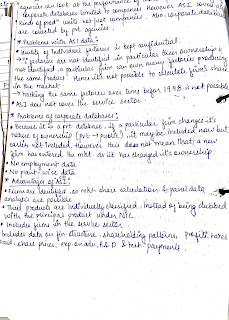 agencies can look at the performance of
corporate database limited to companies. However ASI covers all
kind of prod" units not just companies. Also, corporate databases
are collected by pvt agencies.
• Problems with ASI data:-
• Results of individual factories is kept confidential
→ factories are not identified in particular their ownership is
not identified. a particular firm can own many factories producing
the same product. Hence it's not possible to calculate firm's share
in the market
→ tracking the same factories over time before 1998 is not possible
→ ASI does not cover the service sector
• Problems of corporate databases:-
• Because it is a pvt database, if a particular firm changes it's
nature of ownership (pvt → public), it may be included now but
earlier not included. However this does not mean that a new
firm has entered the mkt as it has changed it's ownership
• No employment data
• No plant-wise data
• Advantages of
• Firms are identified, so mkt share calculation & panel data
analysis are possible
• Their products are individually classified instead of being clubbed
with the principal product under NIC.
• Includes firms in the service sector
Includes data on fin. structure, shareholding pattern, profit, taxes
paid, share prices, exp on adv, R&D & tech payments